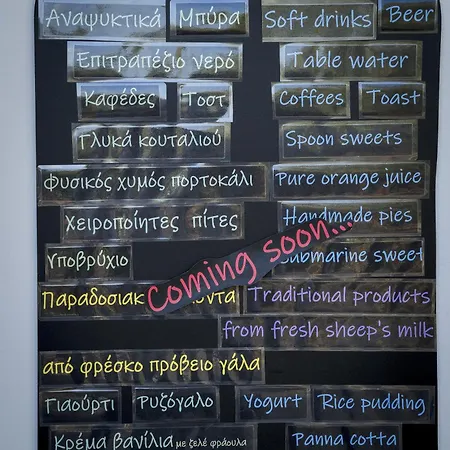 Αναψυκτικά Μπύρα Soft drinks Beer
Επιτραπέζιο νερό Table water
Καφέδες Τοστ Coffees Toast
Γλυκά κουταλιού Spoon sweets
Φυσικός χυμός πορτοκάλι Pure orange juice
Χειροποίητες πίτες Handmade pies
Υποβρύχιο Submarine sweet
Coming soon...
Παραδοσιακ ντα Traditional products
from fresh sheep's milk
από φρέσκο πρόβειο γάλα
Γιαούρτι Ρυζόγαλο Yogurt Rice pudding
Κρέμα βανίλια με ζελέ φράουλα Panna cotta